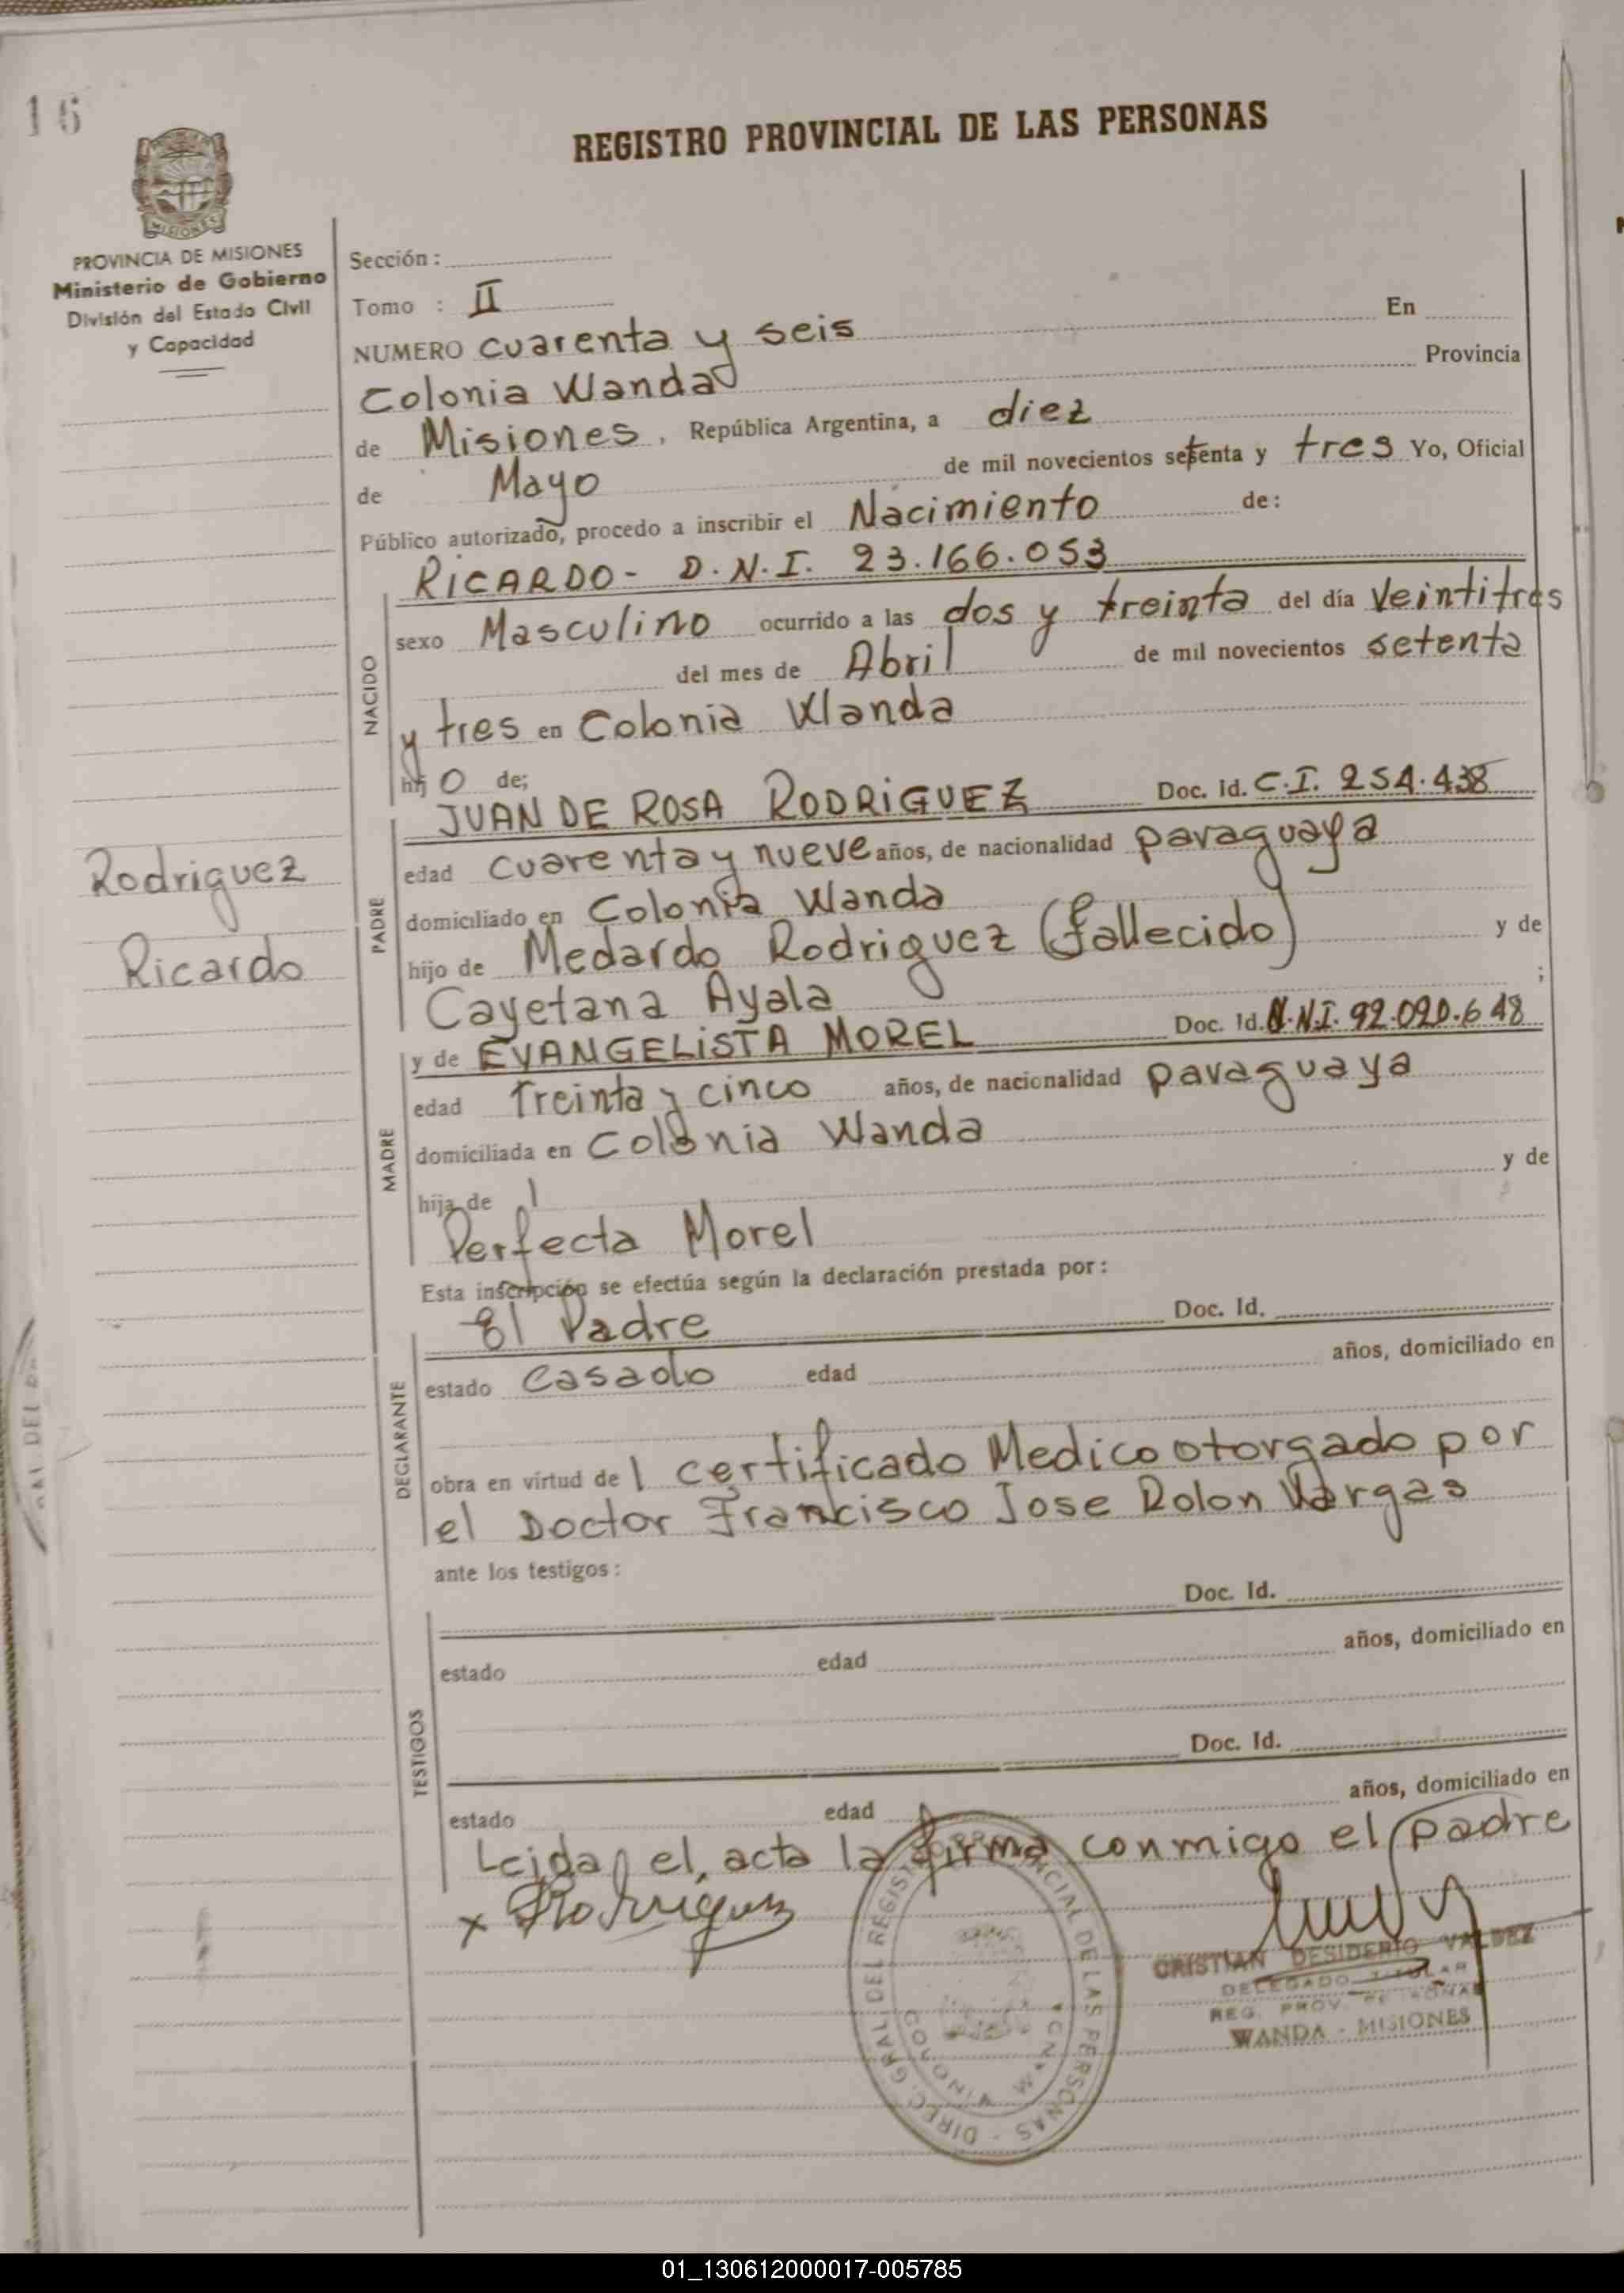 16
REGISTRO PROVINCIAL DE LAS PERSONAS
MISIONES
PROVINCIA DE MISIONES
Ministerio de Gobierno
División del Estado Civil
y Capacidad
Sección:
Tomo : II
NUMERO cuarenta y seis En
Colonia Wanda Provincia
de Misiones, República Argentina, a diez
de Mayo de mil novecientos setenta y tres Yo, Oficial
Público autorizado, procedo a inscribir el Nacimiento de:
NACIDO
RICARDO- D.N.I. 23.166.053
sexo Masculino ocurrido a las dos y treinta del día Veintitres
del mes de Abril de mil novecientos setenta
y tres en Colonia Wanda
hij o de;
PADRE
JUAN DE ROSA RODRIGUEZ Doc. Id. C.I. 254.438
edad cuarenta y nueve años, de nacionalidad paraguaya
domiciliado en Colonia Wanda
hijo de Medardo Rodriguez (fallecido) y de
Cayetana Ayala ;
Rodriguez
Ricardo
MADRE
y de EVANGELISTA MOREL Doc. Id. D.N.I. 92.020.648
edad Treinta y cinco años, de nacionalidad paraguaya
domiciliada en Colonia Wanda
hija de y de
Perfecta Morel
Esta inscripción se efectúa según la declaración prestada por:
DECLARANTE
El Padre Doc. Id.
estado Casado edad años, domiciliado en
obra en virtud de l certificado Medico otorgado por
el Doctor Francisco Jose Rolon Vargas
ante los testigos:
TESTIGOS
Doc. Id.
estado edad años, domiciliado en
Doc. Id.
estado edad años, domiciliado en
Leida el acta la firma conmigo el padre
x Rodriguez
DIREC. GRAL. DEL REGISTRO PROVINCIAL DE LAS PERSONAS
CRISTIAN DESIDERIO VALDEZ
DELEGADO TITULAR
REG. PROV.
WANDA - MISIONES
01_130612000017-005785